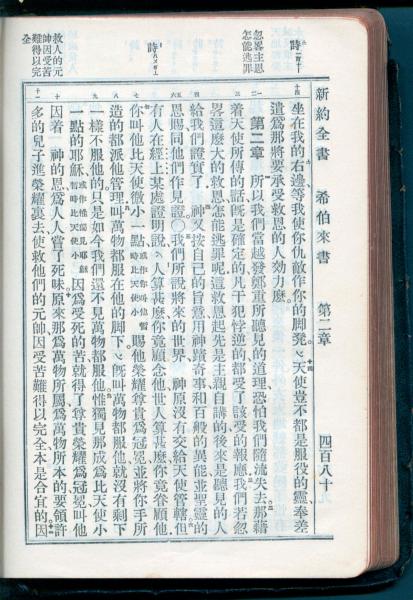 新約全書　希伯來書　第二章　四百八十
忽畧主恩
怎能逃罪
詩
救人的元
帥因受苦
難得以完
全
坐在我的右邊等我使你仇敵作你的脚凳。天使豈不都是服役的靈奉差
遣爲那將要承受救恩的人効力麽。
第二章　所以我們當越發鄭重所聽見的道理恐怕我們隨流失去那藉
着天使所傳的話旣是確定的凡干犯悖逆的都受了該受的報應我們若忽
畧這麽大的救恩怎能逃罪呢這救恩起先是主親自講的後來是聽見的人
給我們證實了　神又按自己的旨意用神蹟奇事和百般的異能並聖靈的
恩賜同他們作見證○我們所說將來的世界　神原沒有交給天使管轄但
有人在經上某處證明說人算甚麽你竟顧念他世人算甚麽你竟眷顧他
你叫他比天使微小一點或作你叫他暫時比天使小賜他榮耀尊貴爲冠冕並將你手所
造的都派他管理叫萬物都服在他的脚下旣叫萬物都服他就沒有剩下
一樣不服他的只是如今我們還不見萬物都服他惟獨見那成爲比天使小
一點的耶穌或作惟獨見耶穌暫時比天使小因爲受死的苦就得了尊貴榮耀爲冠冕叫他
因着　神的恩爲人人嘗了死味原來那爲萬物所屬爲萬物所本的要領許
多的兒子進榮耀裏去使救他們的元帥因受苦難得以完全本是合宜的因